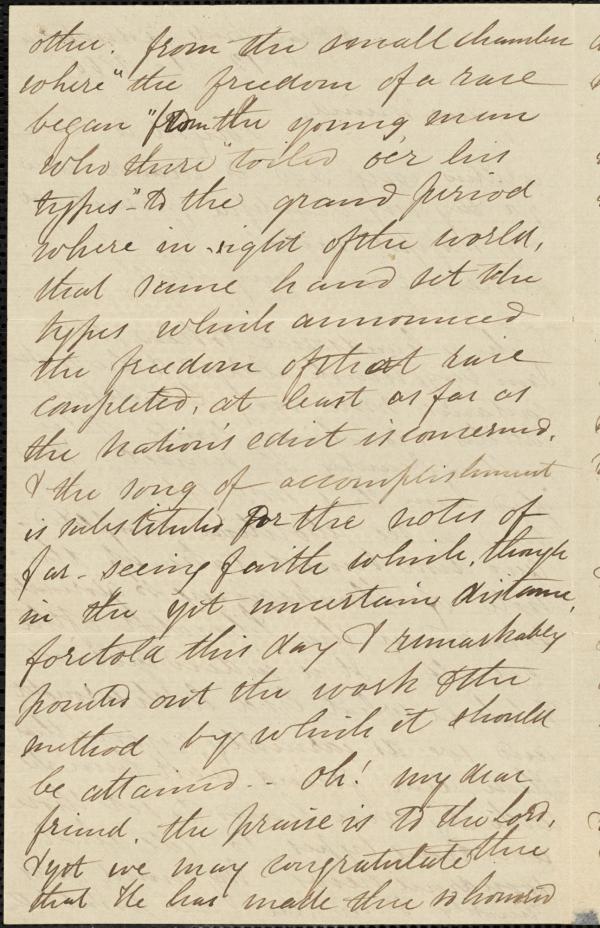 other. from the small chamber
where "the freedom of a race
began" from the young man
who there "toiled o'er his
types" - to the grand period
where in sight of the world,
that same hand set the
types which announced
the freedom of that race
completed, at least as far as
the Nation's edict is concerned,
& the song of accomplishment
is substituted for the notes of
far-seeing faith which, though
in the yet uncertain distance,
foretold this day & remarkably
pointed out the work & the
method by which it should
be attained. - Oh! my dear
friend, the praise is to the Lord,
& yet we may congratulate thee
that He has made thee so honored